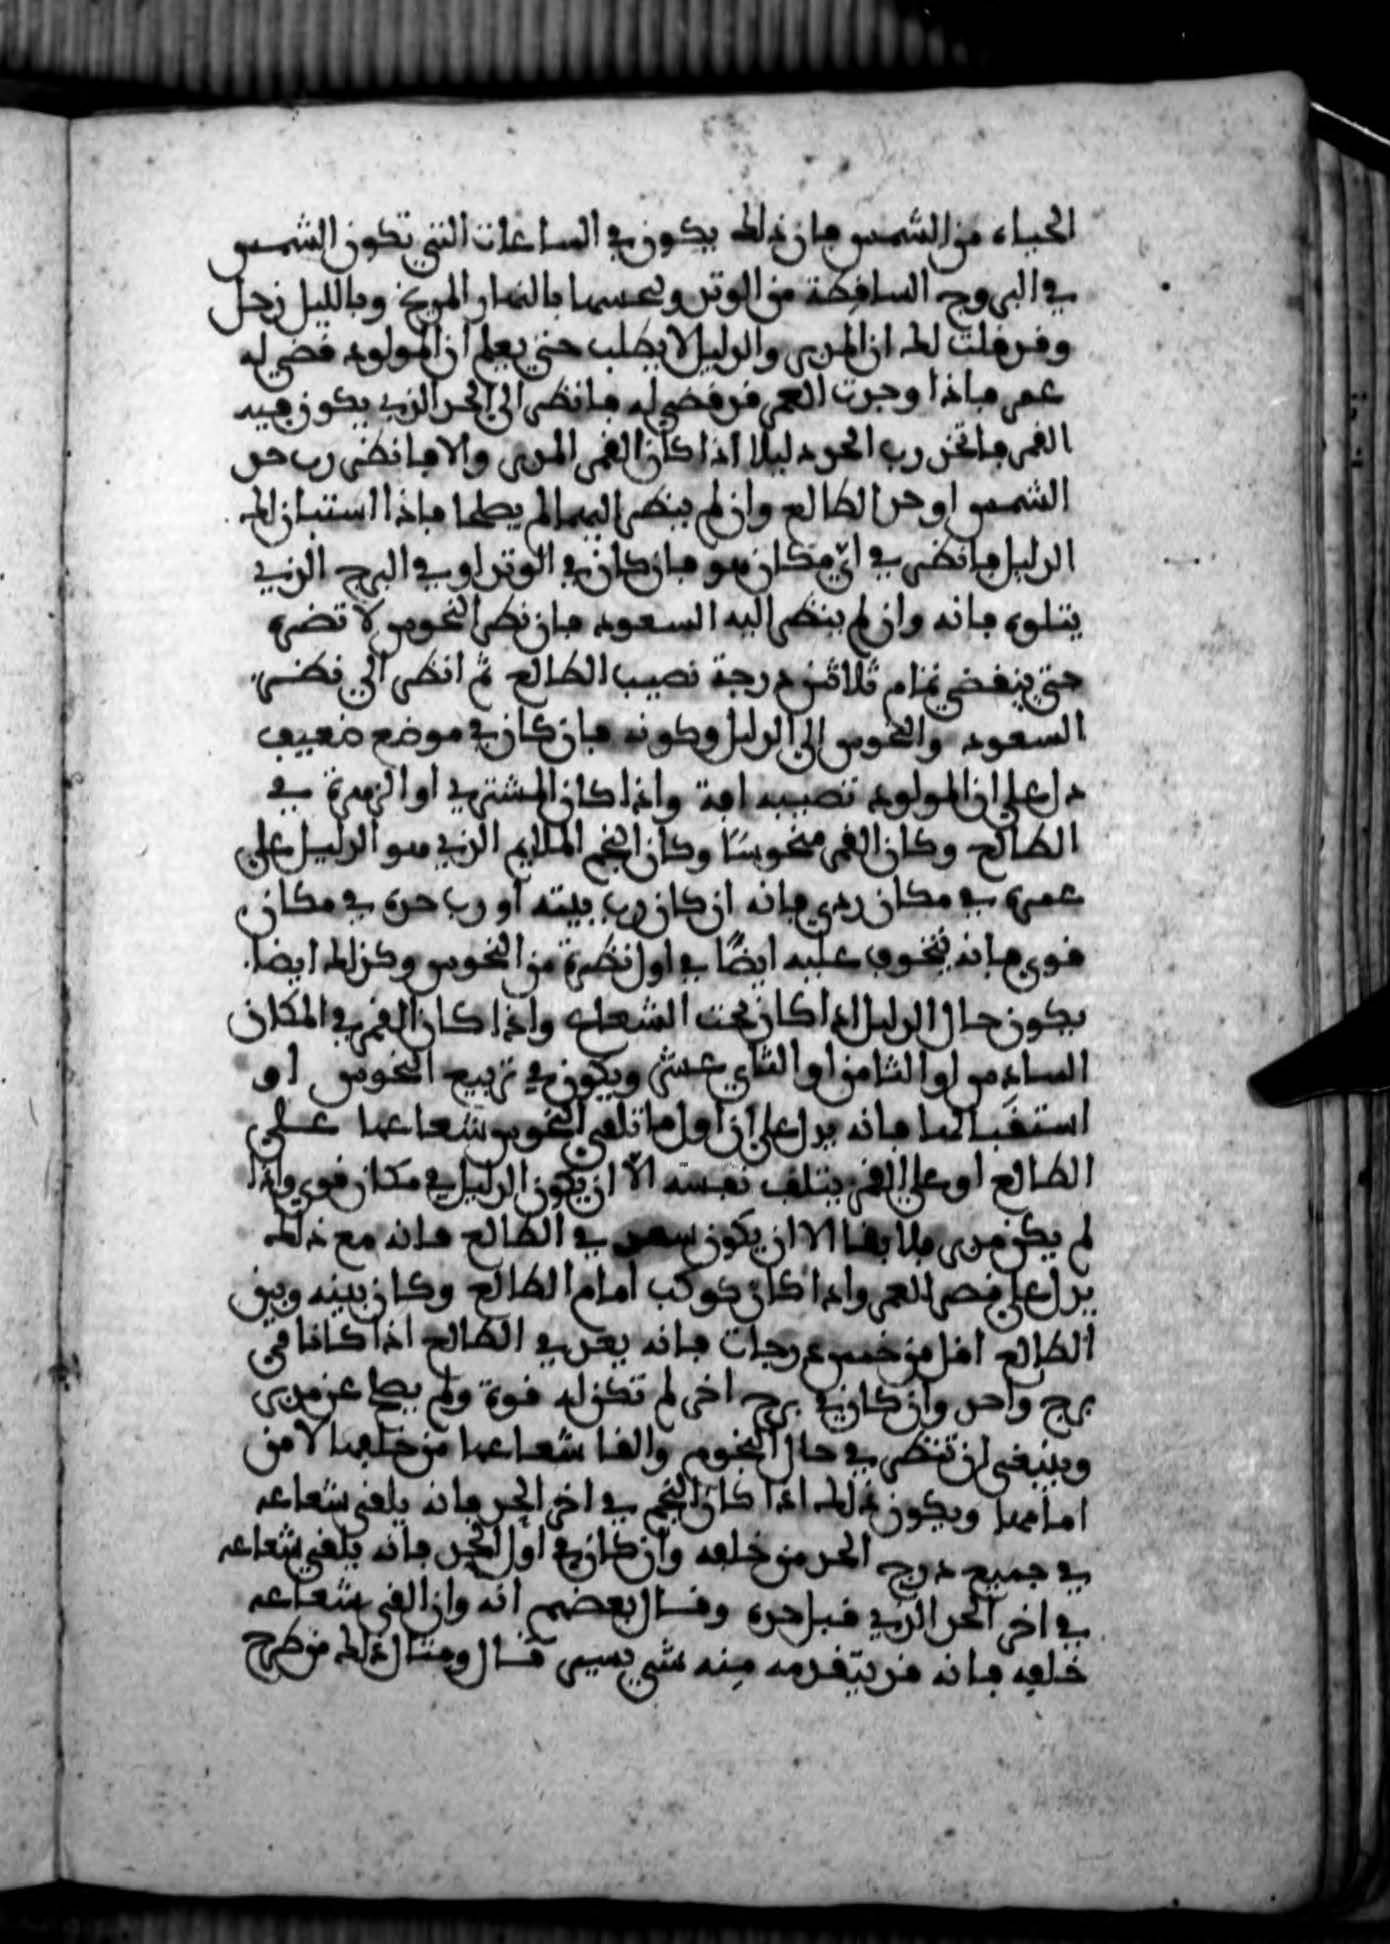 الحياة من الشمس فان ذلك يكون في الساعات التي تكون الشمس
في البروج الساقطة من الوتر ونحسها بالنهار المريخ وبالليل زحل
وقد قلت لك ان المدبر والدليل لا يطلب حتى يعلم ان المولود قضي له
عمر فاذا وجدت العمر قد قضي له فانظر الى الحد الذي يكون فيه
القمر فاتخذ رب الحد دليلا اذا كان القمر المدبر والا فانظر رب حد
الشمس او حد الطالع وان لم ينظر اليهما لم يصلحا فاذا استبان لك
الدليل فانظر في اي مكان هو فان كان في الوتر او في البرج الذي
يتلوه فانه وان لم ينظر اليه السعود فان نظر النحوس لا تضره
حتى ينقضي تمام ثلاثين درجة نصيب الطالع ثم انظر الى نظر
السعود والنحوس الى الدليل وكونه فان كان في موضع ضعيف
دل على ان المولود تصيبه افة واذا كان المشتري او الزهرة في
الطالع وكان القمر منحوسًا وكان النجم الملايم الذي هو الدليل على
عمره في مكان ردي فانه ان كان رب بيته او رب حده في مكان
قوي فانه يتخوف عليه ايضًا في اول نظرة من النحوس وكذلك ايضا
يكون حال الدليل اذا كان تحت الشعاع واذا كان القمر في المكان
السادس او الثامن او الثاني عشر ويكون في تربيع النحوس او
استقبالها فانه يدل على ان اول ما تلقي النحوس شعاعها على
الطالع او على القمر يتلف نفسه الا ان يكون الدليل في مكان قوي واذا
لم يكن مدبر فلا بقا الا ان يكون سعد في الطالع فانه مع ذلك
يدل على قصر العمر واذا كان كوكب امام الطالع وكان بينه وبين
الطالع اقل من خمس درجات فانه يعد في الطالع اذا كانا في
برج واحد وان كان في برج اخر لم تكن له قوة ولم
وينبغي ان تنظر في حال النجوم والقا شعاعها من خلفها لا من
امامها ويكون ذلك اذا كان النجم في اخر الحد فانه يلقي شعاعه
في جميع درج الحد من خلفه وان كان في اول الحد فانه يلقي شعاعه
في اخر الحد الذي قبل حده وقال بعضهم انه وان القى شعاعه
خلفه فانه قد يتقدمه منه شي يسير قال ومثال ذلك من طرح